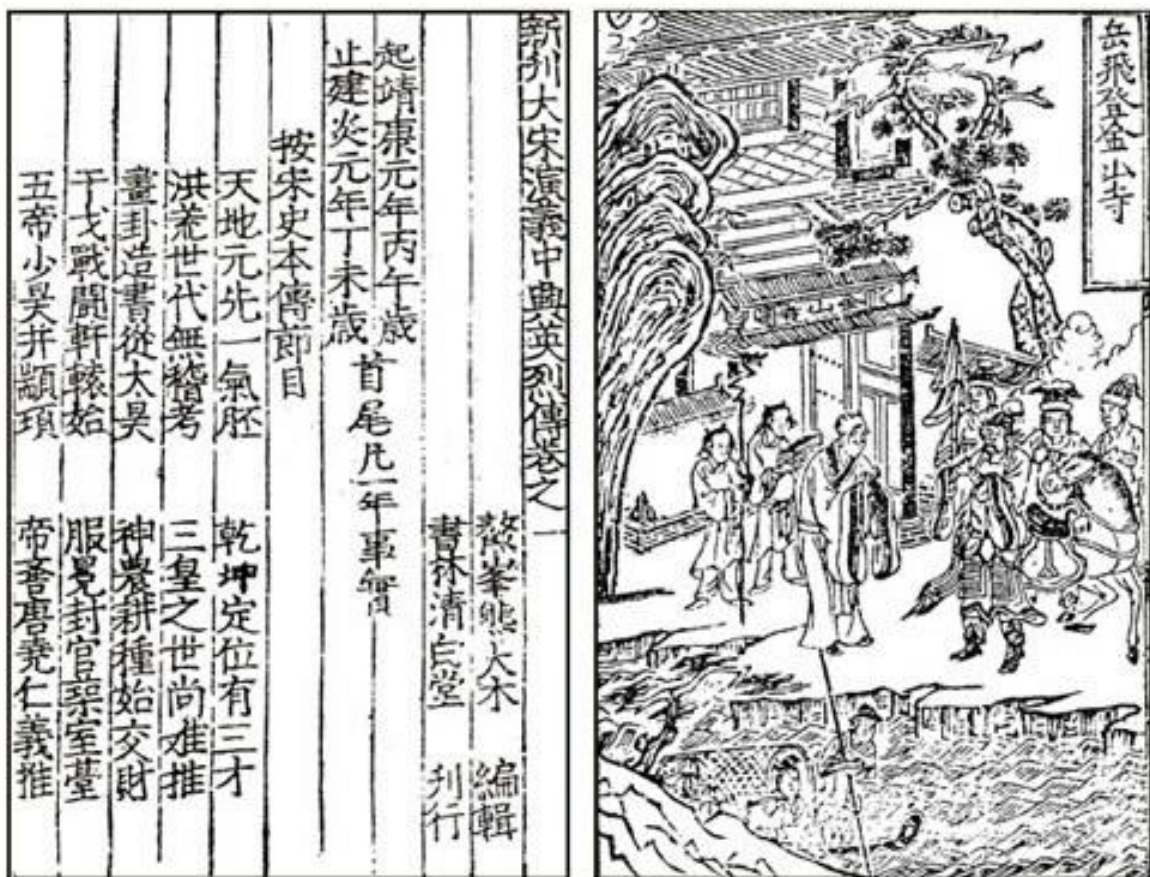 新刋大宋演義中興英烈傳卷之一
鰲峯熊大木 編輯
書林清白堂 刋行
起靖康元年丙午歲
止建炎元年丁未歲
首尾凡一年事實
按宋史本傳節目
天地元先一氣胚 乾坤定位有三才
洪荒世代無稽考 三皇之世尚难推
畫卦造書從太昊 神農耕種始交財
干戈戰鬪軒轅始 服冕封官築室臺
五帝少昊并顓頊 帝嚳唐堯仁義推
岳飛登金山寺